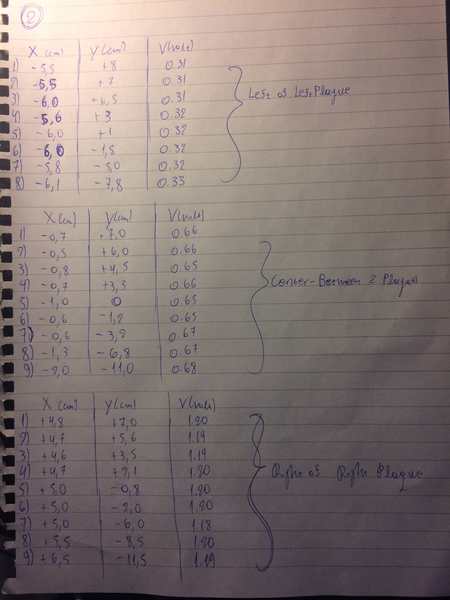 2
X (cm) y (cm) V(volts)
1) -5,5 +8 0.31
2) -5,5 +7 0.31
3) -6,0 +4,5 0.31
4) -5,6 +3 0.32
5) -6,0 +1 0.32
6) -6,0 -1,5 0.32
7) -5,8 -5,0 0.32
8) -6,1 -7,8 0.33
Left of Left Plaque
X (cm) y (cm) V(volts)
1) -0,7 +7,0 0.66
2) -0,5 +6,0 0.66
3) -0,8 +4,5 0.65
4) -0,7 +3,3 0.66
5) -1,0 0 0.65
6) -0,6 -1,2 0.65
7) -0,6 -3,8 0.67
8) -1,3 -6,8 0.67
9) -2,0 -11,0 0.68
Center-Between 2 Plaques
X (cm) y (cm) V(volts)
1) +4,8 +7,0 1.20
2) +4,7 +5,6 1.19
3) +4,6 +3,5 1.19
4) +4,7 +2,1 1.20
5) +5,0 -0,8 1.20
6) +5,0 -2,0 1.20
7) +5,0 -6,0 1.18
8) +5,5 -8,5 1.20
9) +6,5 -11,5 1.19
Right of Right Plaque